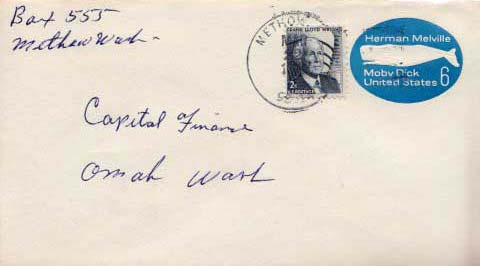 Box 555
Methow Wash
METHOW
FRANK LLOYD WRIGHT
2¢
U.S. POSTAGE
Herman Melville
Moby Dick
United States 6
Capital Finance
Omak Wash